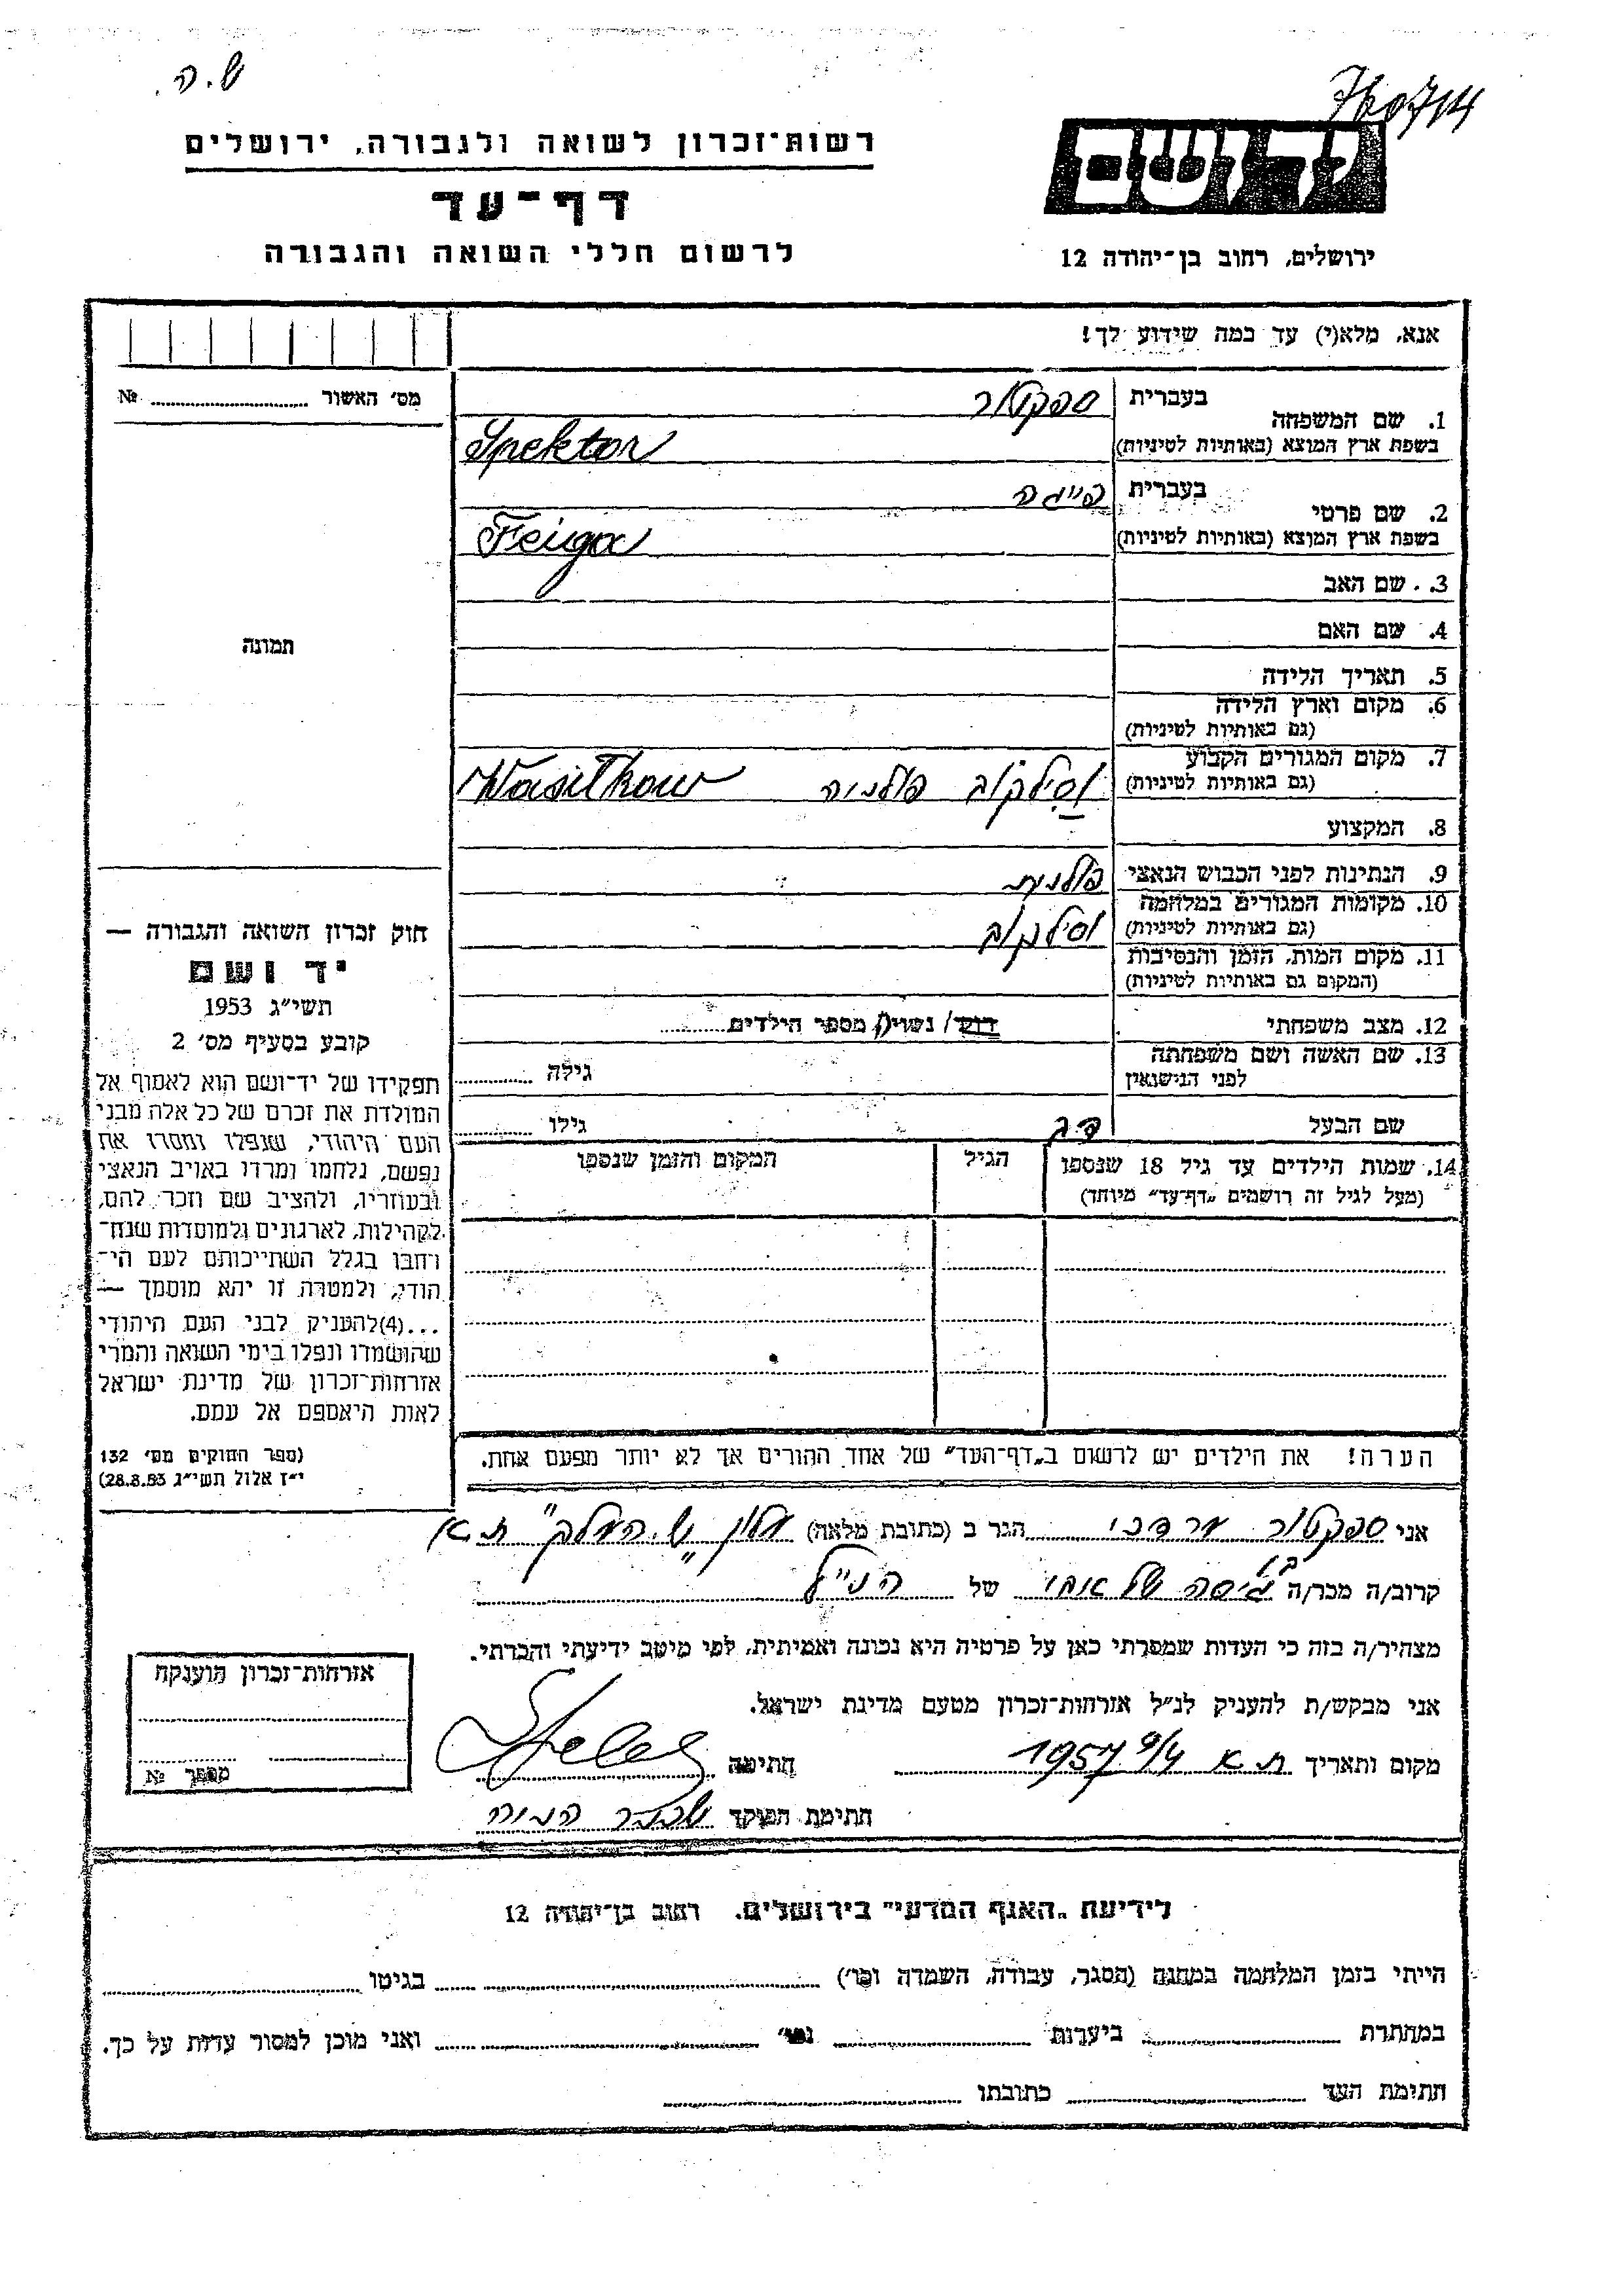 ש.ה.
רשות־זכרון לשואה ולגבורה, ירושלים
דף־עד
לרשום חללי השואה והגבורה
יד ושם
ירושלים, רחוב בן־יהודה 12
אנא, מלא(י) עד כמה שידוע לך!
מס׳ האשור № 
1. שם המשפחה
בעברית ספקטור
בשפת ארץ המוצא (באותיות לטיניות) Spektor
2. שם פרטי
בעברית פייגה
בשפת ארץ המוצא (באותיות לטיניות) Feiga
3. שם האב
4. שם האם
תמונה
5. תאריך הלידה
6. מקום וארץ הלידה
(גם באותיות לטיניות)
7. מקום המגורים הקבוע
(גם באותיות לטיניות) וסילקוב פולניה Wasilkow
8. המקצוע
9. הנתינות לפני הכבוש הנאצי פולנית
10. מקומות המגורים במלחמה
(גם באותיות לטיניות) וסילקוב
11. מקום המות, הזמן והנסיבות
(המקום גם באותיות לטיניות)
12. מצב משפחתי רווק/ נשוי/ מספר הילדים
13. שם האשה ושם משפחתה
לפני הנישואין גילה
שם הבעל גילו
14. שמות הילדים עד גיל 18 שנספו
(מעל לגיל זה רושמים „דף־עד״ מיוחד)
הגיל
המקום והזמן שנספו
חוק זכרון השואה והגבורה —
יד ושם
תשי״ג 1953
קובע בסעיף מס׳ 2
תפקידו של יד־ושם הוא לאסוף אל
המולדת את זכרם של כל אלה מבני
העם היהודי, שנפלו ומסרו את
נפשם, נלחמו ומרדו באויב הנאצי
ובעוזריו, ולהציב שם וזכר להם,
לקהילות, לארגונים ולמוסדות שנח־
רחבו בגלל השתייכותם לעם הי־
הודי, ולמטרה זו יהא מוסמך —
...(4)להעניק לבני העם היהודי
שהושמדו ונפלו בימי השואה והמרי
אזרחות־זכרון של מדינת ישראל
לאות היאספם אל עמם.
(ספר החוקים מס׳ 132
י״ז אלול תשי״ג 28.8.53)
הערה! את הילדים יש לרשום ב„דף־העד״ של אחד ההורים אך לא יותר מפעם אחת.
אני ספקטור מרדכי הגר ב (כתובת מלאה) מלון ת.א
קרוב/ה מכר/ה גיסה של אבי של הנ״ל
מצהיר/ה בזה כי העדות שמסרתי כאן על פרטיה היא נכונה ואמיתית, לפי מיטב ידיעתי והכרתי.
אני מבקש/ת להעניק לנ״ל אזרחות־זכרון מטעם מדינת ישראל.
מקום ותאריך ת.א 9/4 1957 חתימה
חתימת הפוקד
אזרחות־זכרון הוענקה
מספר №
לידיעת „האגף המדעי״ בירושלים, רחוב בן־יהודה 12
הייתי בזמן המלחמה במחנה (הסגר, עבודה, השמדה וכו׳) בגיטו
במחתרת ביערות וכו׳ ואני מוכן למסור עדות על כך.
חתימת העד כתובתו